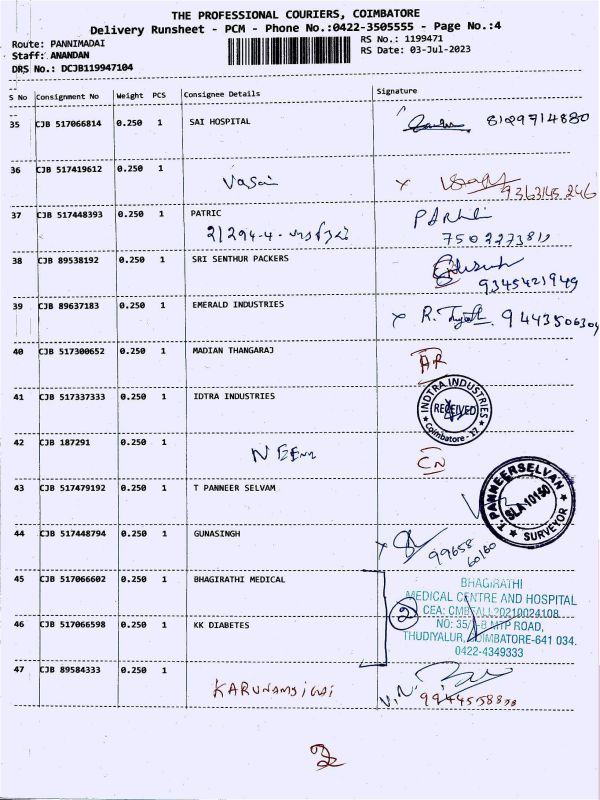 THE PROFESSIONAL COURIERS, COIMBATORE
Delivery Runsheet - PCM - Phone No.:0422-3505555 - Page No.:4
Route: PANNIMADAI
RS No.: 1199471
Staff: ANANDAN
RS Date: 03-Jul-2023
DRS No.: DCJB119947104
S No Consignment No Weight PCS Consignee Details Signature
35 CJB 517066814 0.250 1 SAI HOSPITAL 8129714880
36 CJB 517419612 0.250 1
Vasan x 9363145246
37 CJB 517448393 0.250 1 PATRIC
7502273811
38 CJB 89538192 0.250 1 SRI SENTHUR PACKERS
9345421949
39 CJB 89637183 0.250 1 EMERALD INDUSTRIES
x R. 9443506304
40 CJB 517300652 0.250 1 MADIAN THANGARAJ
AR
41 CJB 517337333 0.250 1 IDTRA INDUSTRIES
INDTRA INDUSTRIES
RECEIVED
Coimbatore - 17
42 CJB 187291 0.250 1
CN
43 CJB 517479192 0.250 1 T PANNEER SELVAM
T. PANNEERSELVAN
SLA-10150
SURVEYOR
44 CJB 517448794 0.250 1 GUNASINGH
x 99658
60160
45 CJB 517066602 0.250 1 BHAGIRATHI MEDICAL
BHAGIRATHI
MEDICAL CENTRE AND HOSPITAL
2
46 CJB 517066598 0.250 1 KK DIABETES
MTP ROAD,
THUDIYALUR, COIMBATORE-641 034.
0422-4349333
47 CJB 89584333 0.250 1
V.N.